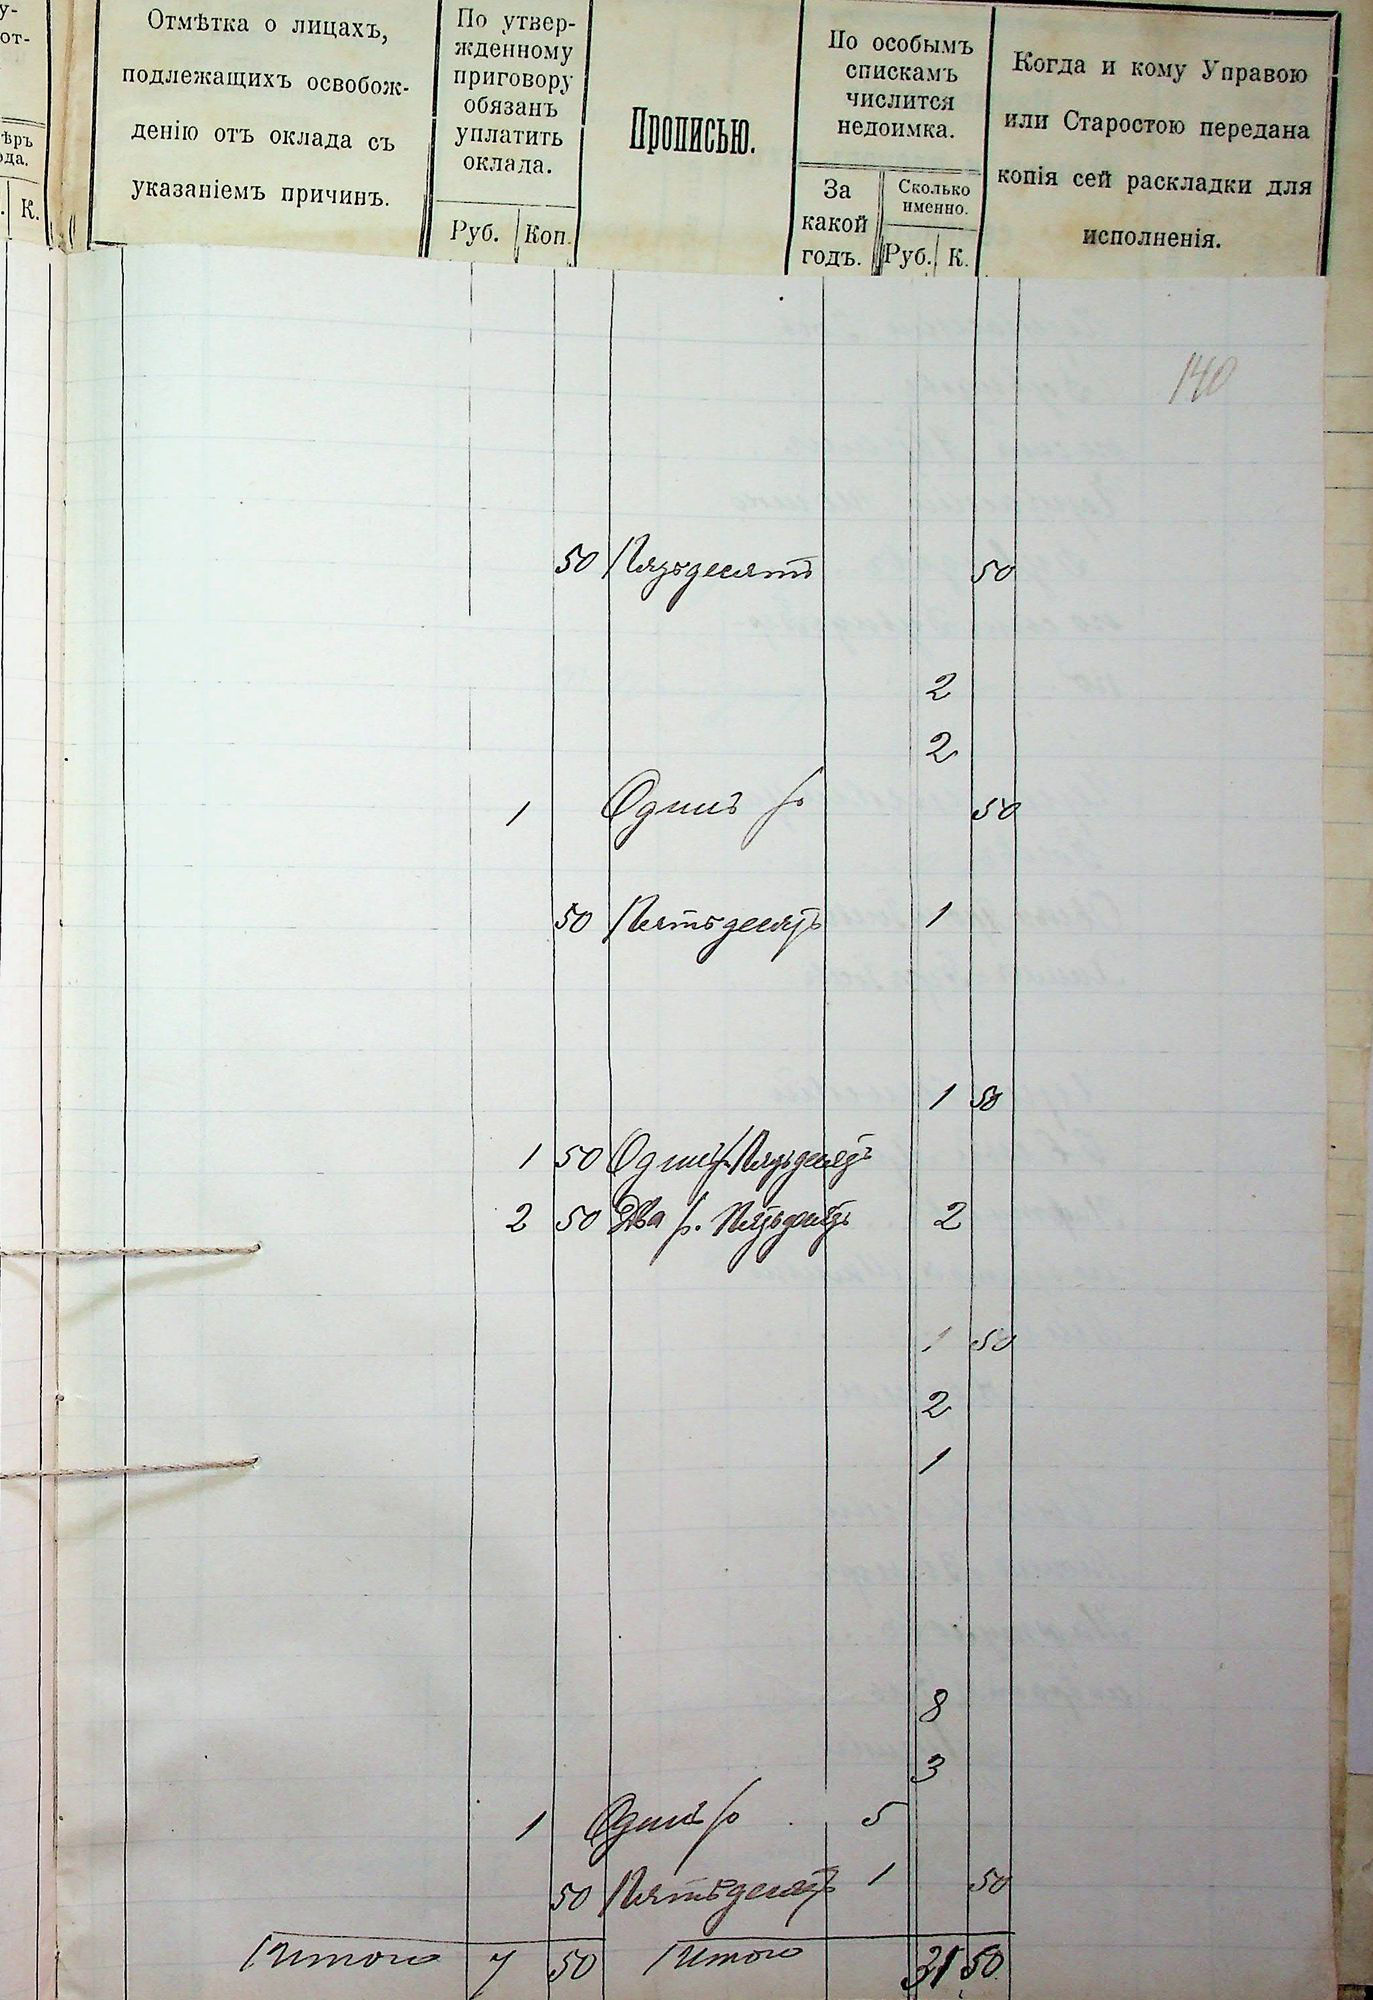 у-
от-
ѣръ
ода.
К.
Отмѣтка о лицахъ,
подлежащихъ освобож-
денію отъ оклада съ
указаніемъ причинъ.
По утвер-
жденному
приговору
обязанъ
уплатить
оклада.
Руб. Коп.
Прописью.
По особымъ
спискамъ
числится
недоимка.
За
какой
годъ.
Сколько
именно.
Руб. К.
Когда и кому Управою
или Старостою передана
копія сей раскладки для
исполненія.
140
50 Пятьдесятъ 50
2
2
1 Одинъ р 50
50 Пятьдесятъ 1
1 50
1 50 Одинъ р. Пятьдесятъ
2 50 Два р. Пятьдесятъ 2
1 50
2
1
8
3
1 Одинъ р 5
50 Пятьдесятъ 1 50
Итого 7 50 Итого 31 50